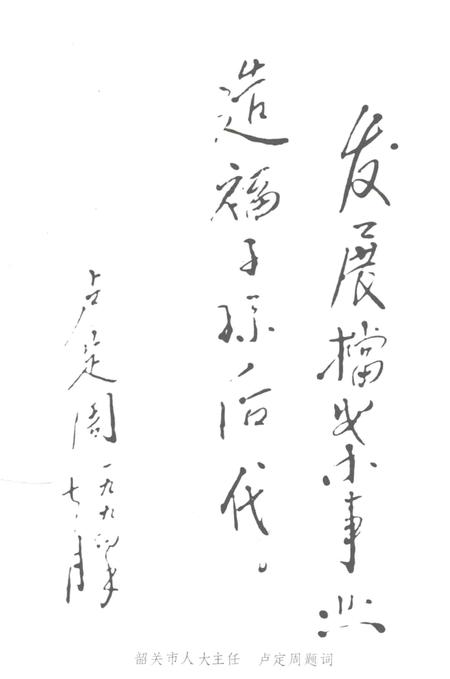 发展檔案事业
造福子孫后代。
卢定周
一九九〇年
七月
韶关市人大主任 卢定周题词